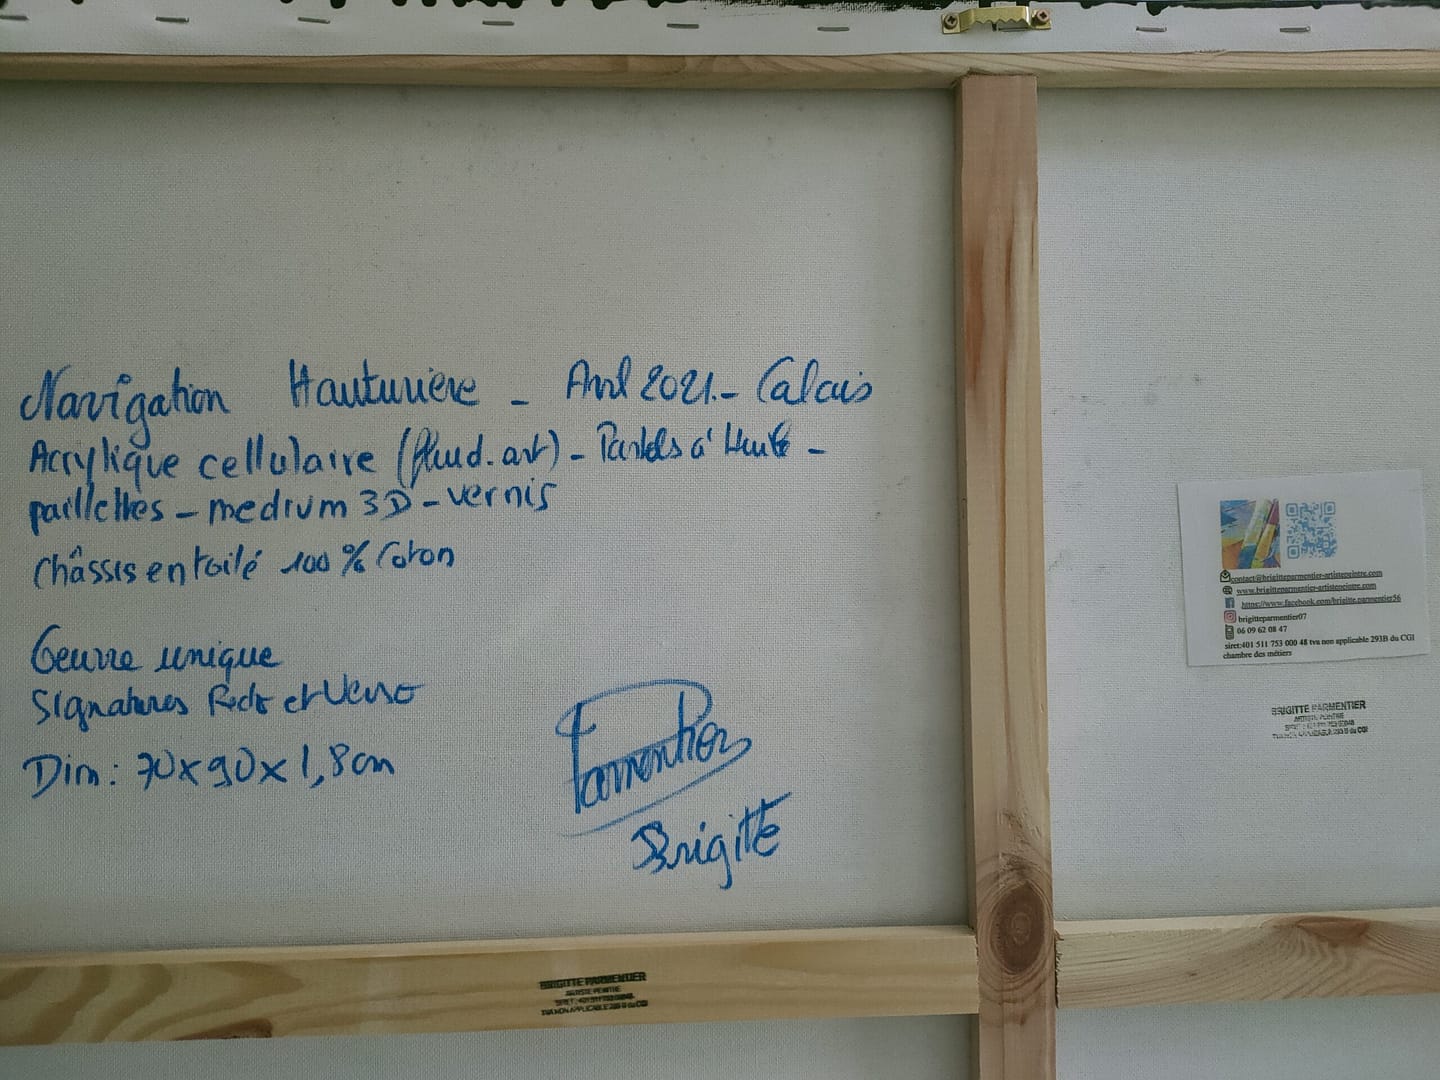 Navigation Hauturière - Avril 2021.- Calais
Acrylique cellulaire (fluid.art) - Pastels à l'huile -
paillettes - medium 3D - vernis
Châssis entoilé 100% Coton
Oeuvre unique
Signatures Recto et Verso
Dim: 70x90x1,8cm
Parmentier
Brigitte
contact@brigitteparmentier-artistepeintre.com
www.brigitteparmentier-artistepeintre.com
https://www.facebook.com/brigitte.parmentier56
brigitteparmentier07
06 09 62 08 47
siret:401 511 753 000 48 tva non applicable 293B du CGI
chambre des métiers
BRIGITTE PARMENTIER
ARTISTE PEINTRE
BRIGITTE PARMENTIER
ARTISTE PEINTRE